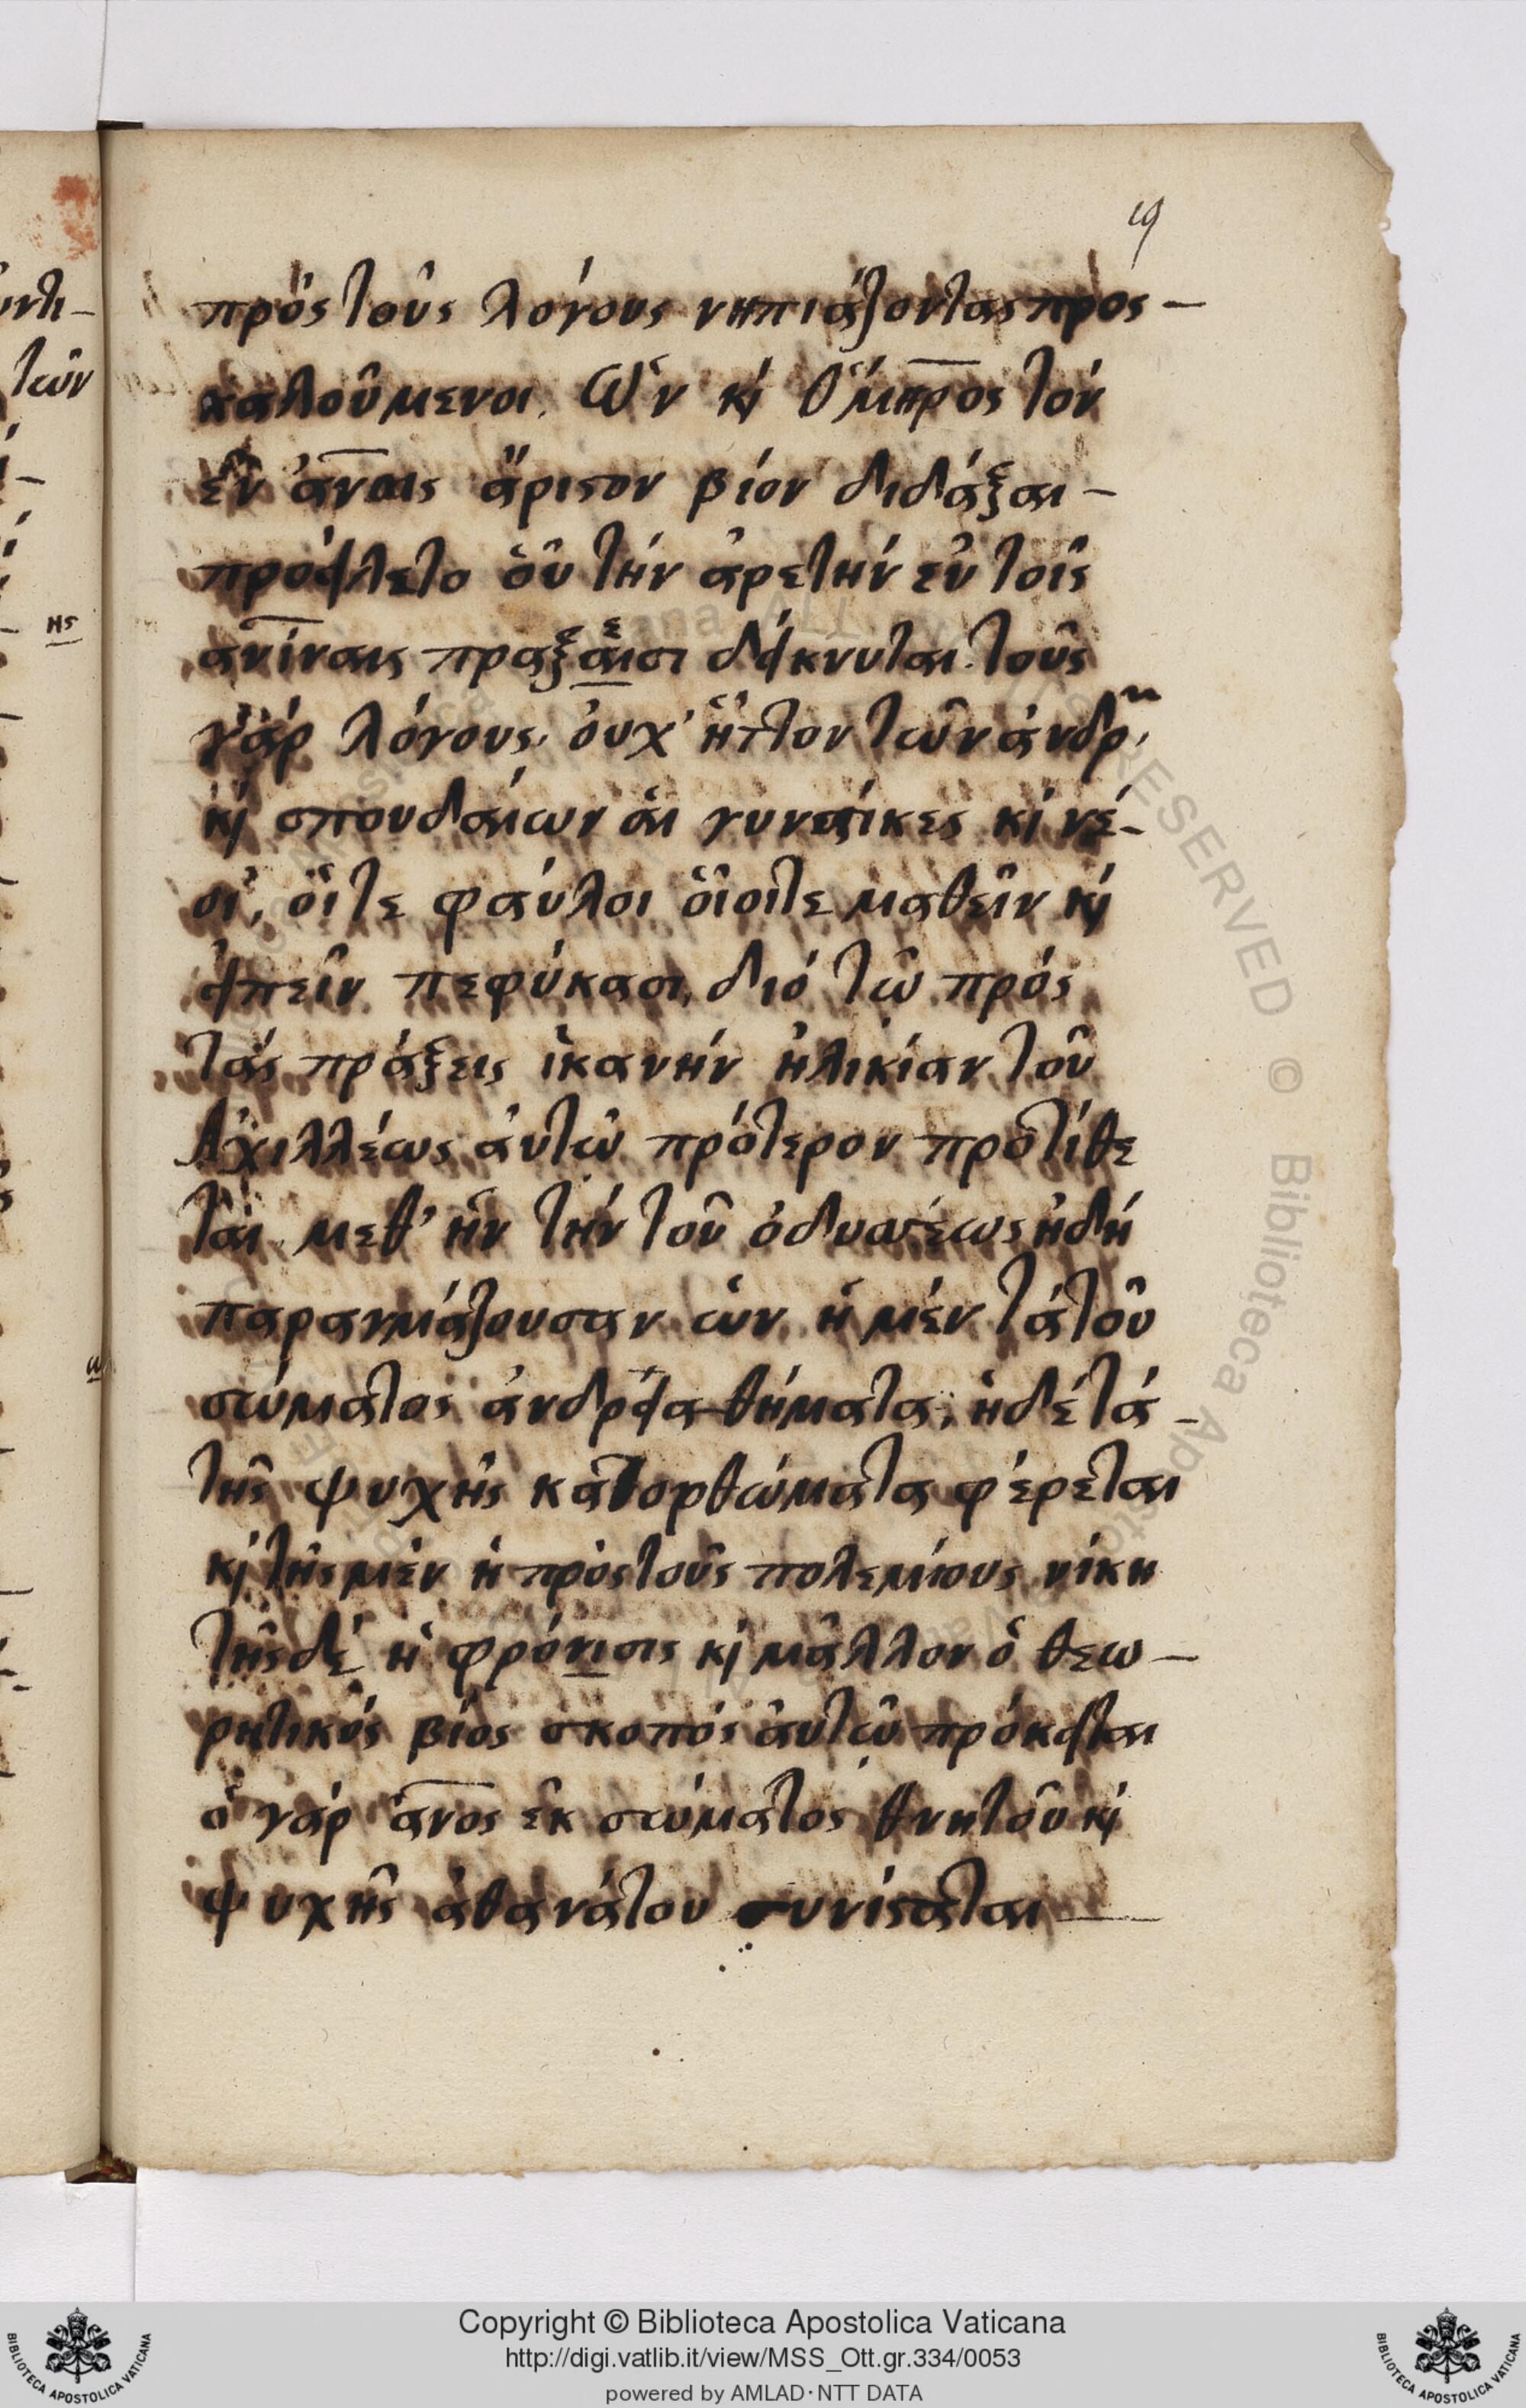 19
πρός τοῦς λόγους νηπιάζοντας προσ-
καλοῦμενοι. Ὧν κ̀ Ὅμηρος τόν
ἐν ἀν̅οις ἄριστον βίον διδάξαι -
προείλετο ὁῦ τήν ἀρετήν ἐν τοῖς
αν̅ίναις πραξεσι δείκνυται. τοῦς
γάρ λόγους, ὀυχ' ἧττον τῶν ἀνδρ
κ̀ σπουδαίων ἁι γυναίκες κ̀ νέ-
οι, ὅι τε φαύλοι ὅιοιτε μαθεῖν κ̀
ειπεῖν πεφύκασι, διό τῶ πρός
τάς πράξεις ἱκανήν ἡλικίαν τοῦ
Ἀχιλλέως ἀυτῶ πρότερον προτίθε
ται μεθ' ἣν τήν τοῦ ὀδυσσέως ἠδή
παρακμάζουσαν ὧν ἡ μέν τά τοῦ
σώματος ἀνδρείαθήματα, ἡ δέ τά -
τῆς ψυχῆς κατορθώματα φέρεται
κ̀ τῆς μὲν ἡ πρὸς τοῦς πολεμίους νίκη
τῆς δέ ἡ φρόνισις κ̀ μᾶλλον ὁ θεω -
ρητικός βίος σκοπός ἀυτῶ πρόκειται
ὁ γάρ ἀν̅ος ἐκ σώματος θνητοῦ κ̀
ψυχῆς ἀθανάτου συνίσταται
ντι-
τῶν
ης
Copyright © Biblioteca Apostolica Vaticana
http://digi.vatlib.it/view/MSS_Ott.gr.334/0053
powered by AMLAD·NTT DATA
BIBLIOTECA APOSTOLICA VATICANA
BIBLIOTECA APOSTOLICA VATICANA